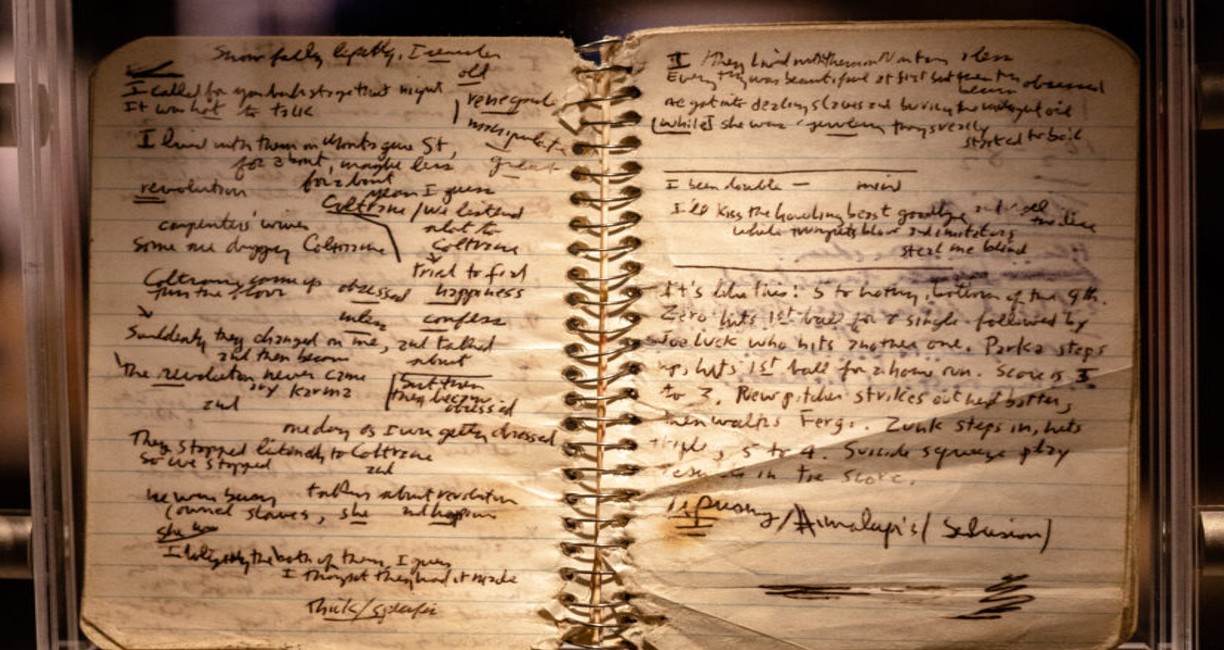 Snow falls lightly, I remember
old
I called for you backstage that night
It was hot to talk
renegade
manipulate
great
I lived with them on Montague St,
for about, maybe less
for about
years I guess
revolution
Coltrane / We listened
alot to
carpenters' wives
Some one digging Coltrane
Coltrane
Coltrane comes up
thru the floor
tried to find
obsessed happiness
confess
Suddenly they changed on me, and talked
and then became about
The revolution never came
or karma
and
but then
they became
obsessed
one day as I was getting dressed
They stopped listening to Coltrane
So we stopped and
He was busy talking about revolution
(owned slaves, she
She was
the both of them, I guess
I thought they had it made
Thick/specific
II They lived with them on Montague &less
Everything was beautiful at first but then they became obsessed
He got into dealing slaves and burning the midnight oil
[While] she was
started to boil
I been double — mind
I'd kiss the howling beast goodbye and sell
while trumpets blow and imitators
steal me blind
It's like this: 5 to nothing, bottom of the 9th.
Zero hits 1st ball for a single followed by
Joe Luck who hits another one. Parka steps
up, hits 1st ball for a home run. Score is 5
to 3. New pitcher strikes out next batter,
then walks Fergi. Zunk steps in, hits
triple, 5 to 4. Suicide squeeze play
in the score.